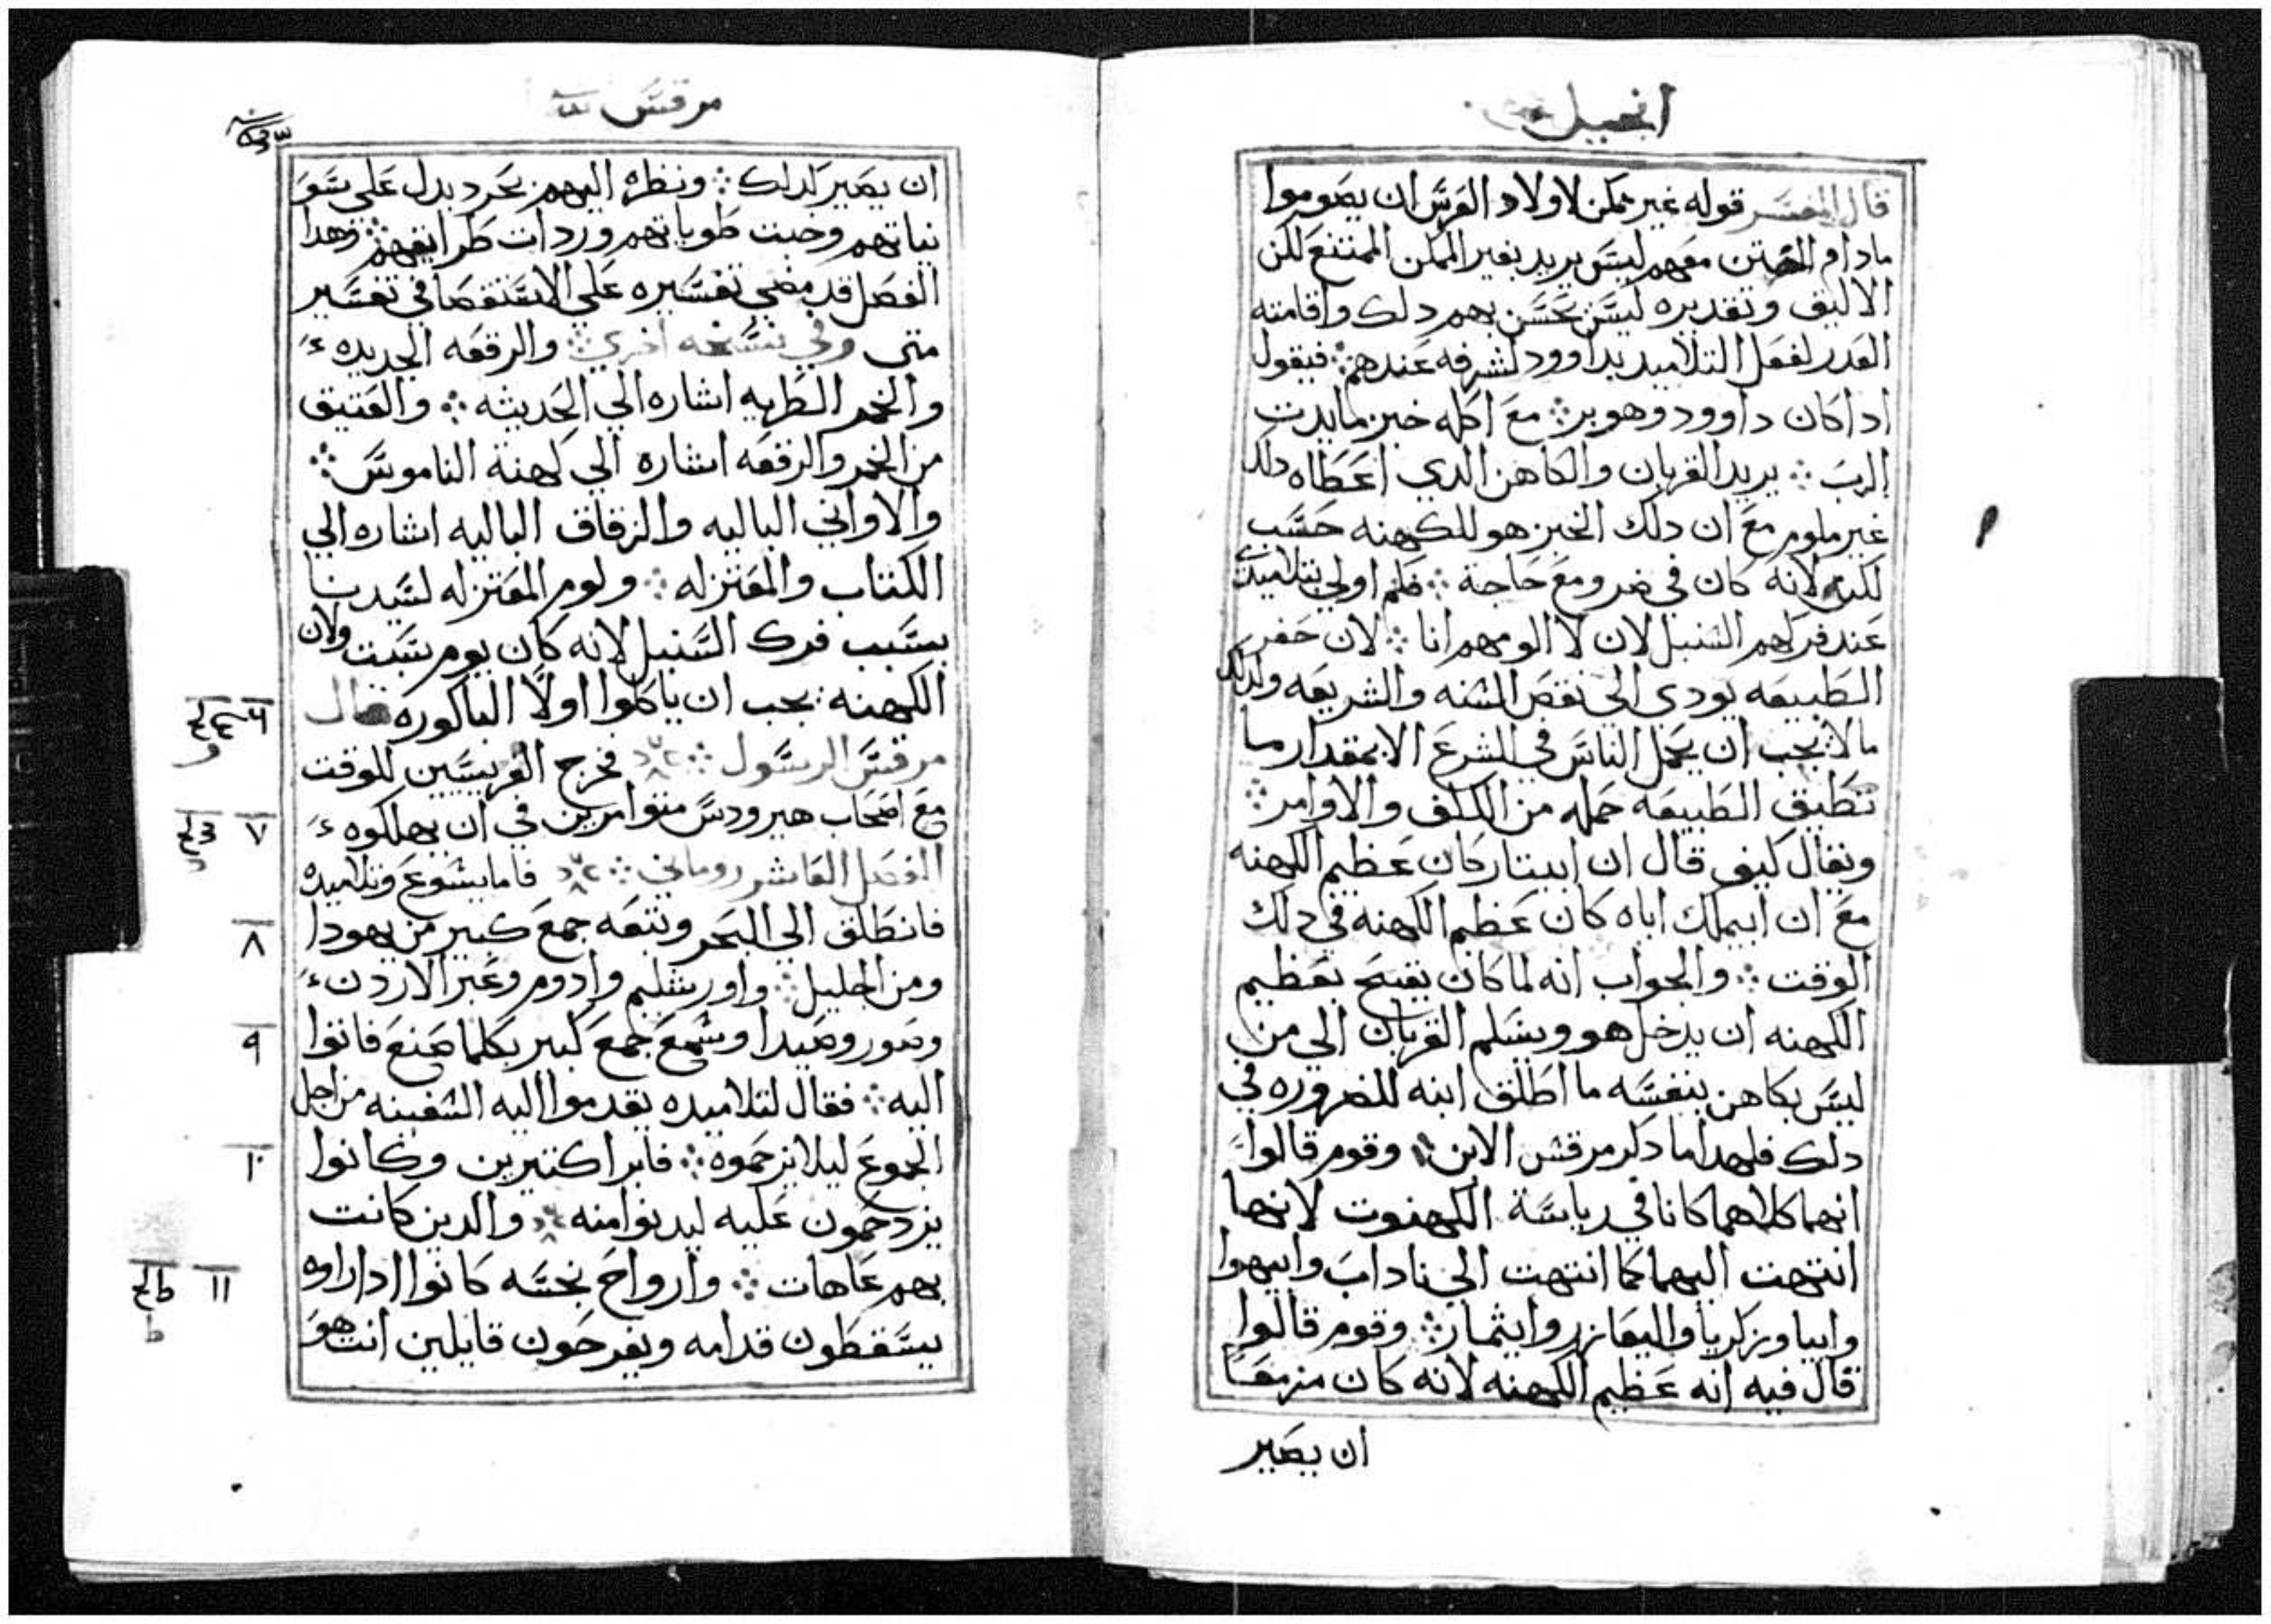 انجيل
قال المفسر قوله غير ممكن لاولاد العرس ان يصوموا
مادام الختن معهم ليس يريد بغير الممكن الممتنع لكن
الاليق وتقديره ليس يحسن بهم دلك واقامته
العدر لفعل التلاميد بداوود لشرفه عندهم ⁘ فيقول
ادا كان داوود وهو بر ⁘ مع اكله خبز مايدت
الرب ⁘ يريد القربان والكاهن الدي اعطاه دلك
غير ملوم مع ان دلك الخبز هو للكهنه حسب
لكن لانه كان في ضر ومع حاجة ⁘ فلم اولي بتلاميدي
عند فركهم السنبل لان لا الومهم انا ⁘ لان حفز
الطبيعه يودي الي نقض السنه والشريعه ولدلك
ما لا يجب ان يحمل الناس في الشرع الا بمقدار ما
تطيق الطبيعه حمله من الكلف والاوامر ⁘
ونقال كيف قال ان ابيتار كان عظيم الكهنه
مع ان ابيملك اباه كان عظيم الكهنه في دلك
الوقت ⁘ والجواب انه لما كان يقبح بعظيم
الكهنه ان يدخل هو ويسلم القربان الي من
ليس بكاهن بنفسه ما اطلق ابنه للضروره في
دلك فلهدا ما دكر مرقس الابن ⁘ وقوم قالوا
انهما كلاهما كانا في رياسة الكهنوت لانها
انتهت اليهما كما انتهت الي ناداب وابيهوا
وابيا وزكريا واليعازر وايثمار ⁘ وقوم قالوا
قال فيه انه عظيم الكهنه لانه كان مزمعا
ان يصير
مرقس
ان يصير لدلك ⁘ ونظره اليهم بحرد يدل علي سو
نياتهم وخبث طوياتهم وردات طرايقهم ⁘ وهدا
الفصل قد مضي تفسيره علي الاستقصا في تفسير
متى وفي نسخه اخري ⁘ والرقعه الجديده
والخمر الطريه اشاره الي الحديثه ⁘ والعتيق
من الخمر والرقعه اشاره الي كهنة الناموس ⁘
والاواني الباليه والزقاق الباليه اشاره الي
الكتاب والمعتزله ⁘ ولوم المعتزله لسيدنا
بسبب فرك السنبل لانه كان يوم سبت ولان
الكهنه يجب ان ياكلوا اولا الباكوره قال
مرقس الرسول ⁘ فخرج الفريسين للوقت
مع اصحاب هيرودس متوامرين في ان يهلكوه
الفصل العاشر روماني ⁘ فاما يشوع وتلاميده
فانطلق الي البحر وتتبعه جمع كبير من يهودا
ومن الجليل ⁘ واورشليم وادوم وعبر الاردن
وصور وصيدا وسمع جمع كبير بكلما صنع فاتوا
اليه ⁘ فقال لتلاميده يقدموا اليه السفينه من اجل
الجموع ليلا يزحموه ⁘ فابرا كتيرين وكانوا
يزدحمون عليه ليدنوا منه ⁘ والدين كانت
بهم عاهات ⁘ وارواح نجسه كانوا ادا راوه
يسقطون قدامه ويفرحون قايلين انت هو
٦
٧
٨
٩
١٠
١١